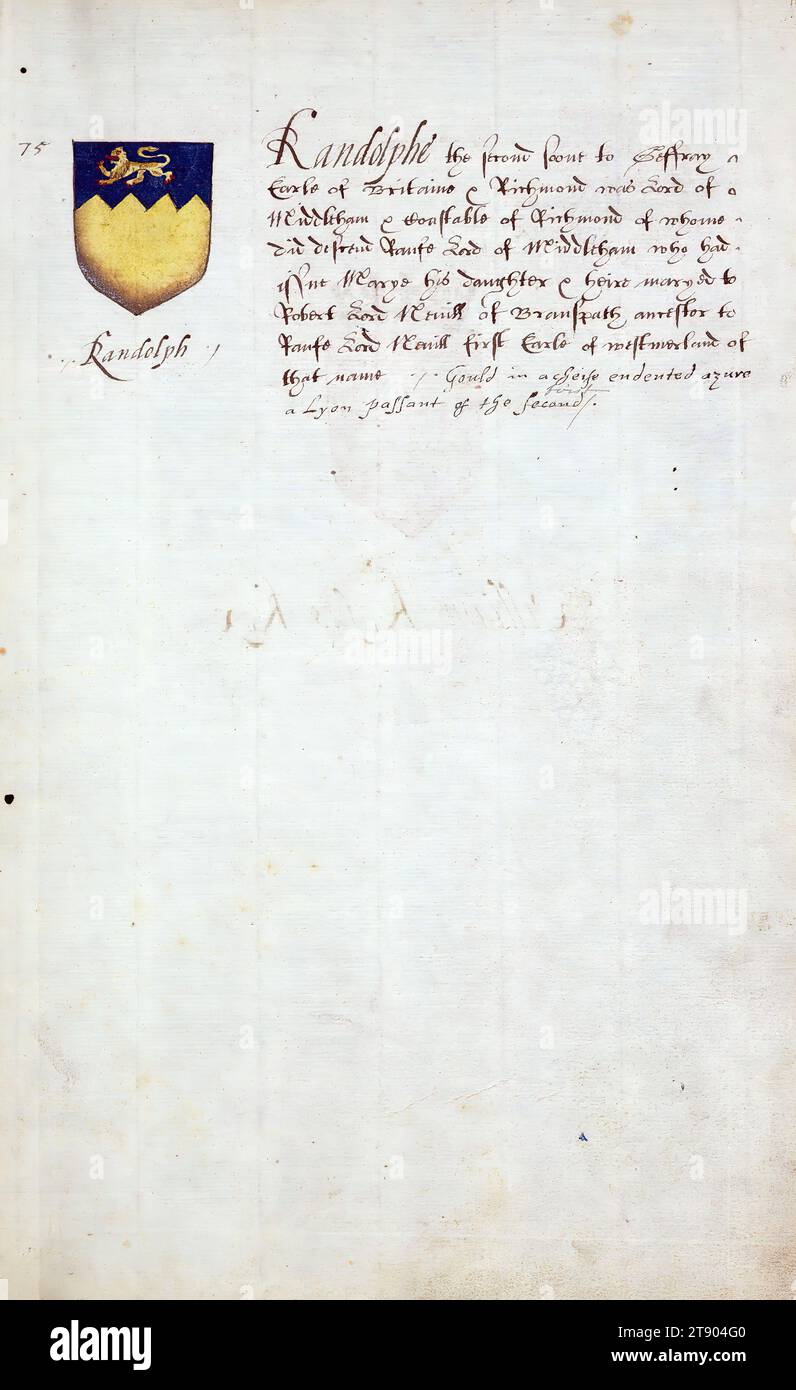 75
Randolph
Randolphe the second sonne to Geffray
Earle of Britaine & Richmond was Lord of
Middleham & Constable of Richmond of whome
did descend Raufe Lord of Middleham who had
issue Marye his daughter & heire maryed to
Robert Lord Nevill of Branspath ancestor to
Raufe Lord Nevill first Earle of westmerland of
that name Gould in a cheife endented azure
first
a Lyon passant of the second
alamy
alamy
Image ID: 2T904G0
www.alamy.com